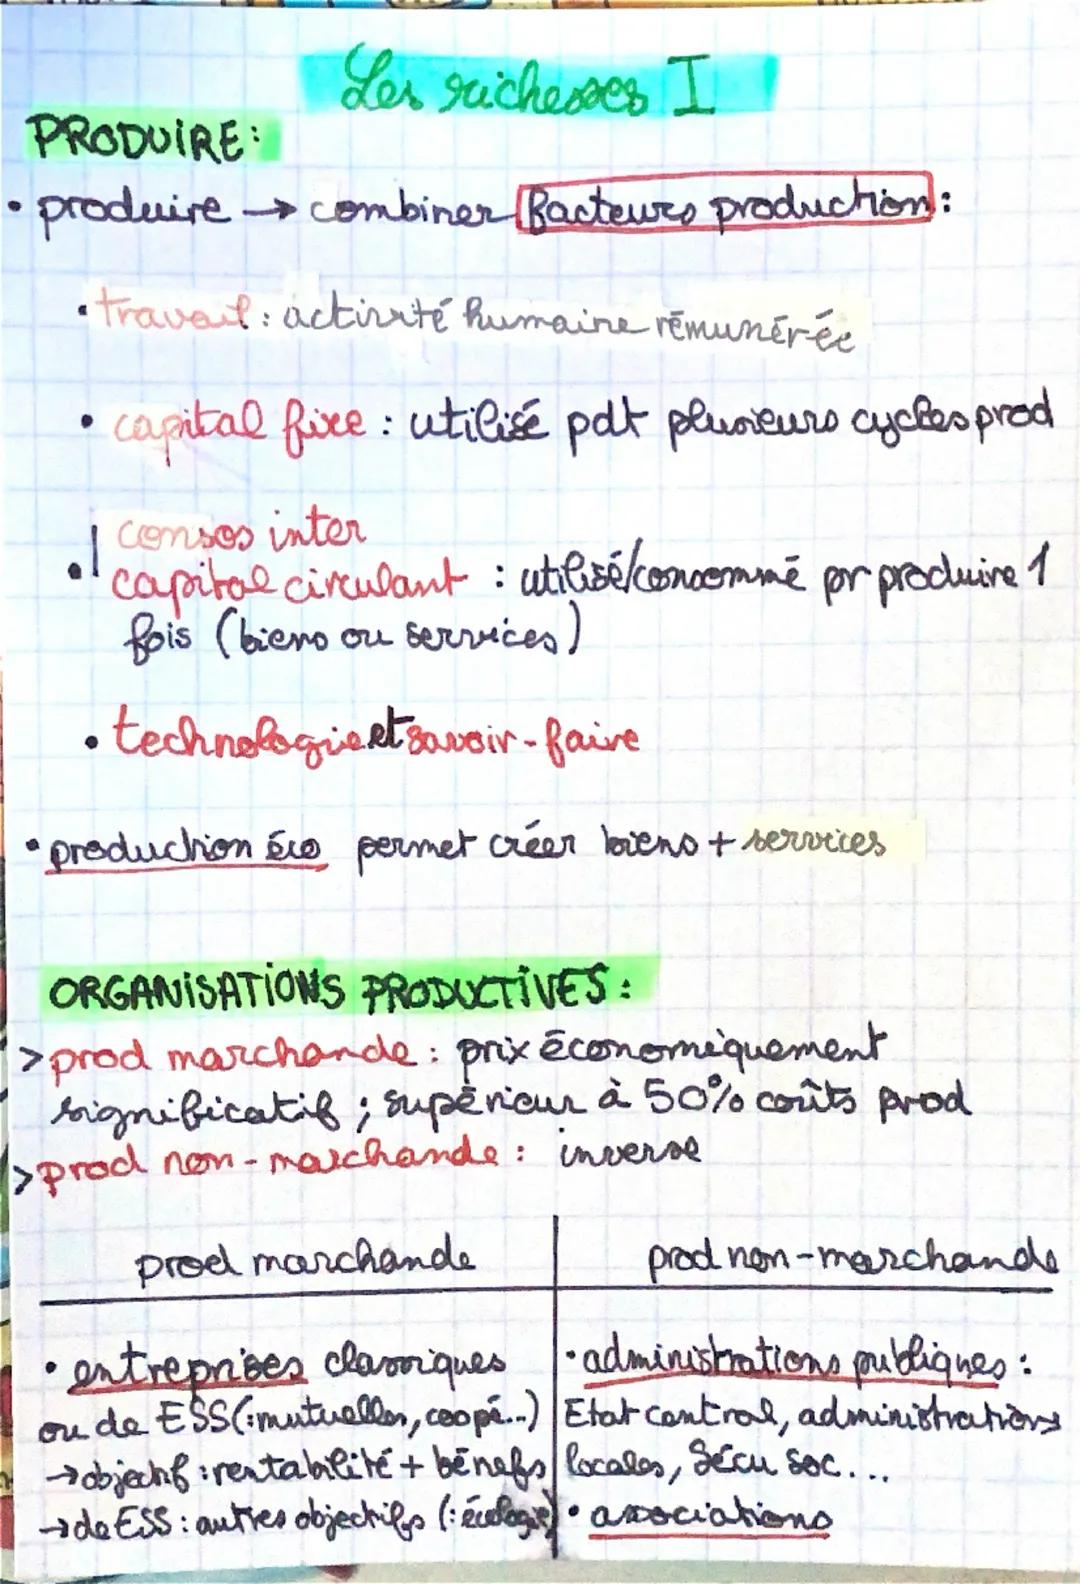 Les richesses I
PRODUIRE:
• produire → combiner facteurs production:
• travail : activité humaine rémunérée
• capital fixe : utilisé pdt plusieurs cycles prod
consos inter
• capital circulant : utilisé/consommé pr produire 1
fois (biens ou services)
• technologie et savoir-faire
• production éco permet créer biens + services
ORGANISATIONS PRODUCTIVES :
> prod marchande : prix économiquement
significatif ; supérieur à 50% coûts prod
> prod non-marchande : inverse
prod marchande
prod non-marchande
• entreprises classiques
ou de ESS (:mutuelles, coopé...)
→ objectif : rentabilité + bénefs
→ de ESS : autres objectifs (: écologie)
• administrations publiques :
Etat central, administrations
locales, Sécu Soc...
• associations